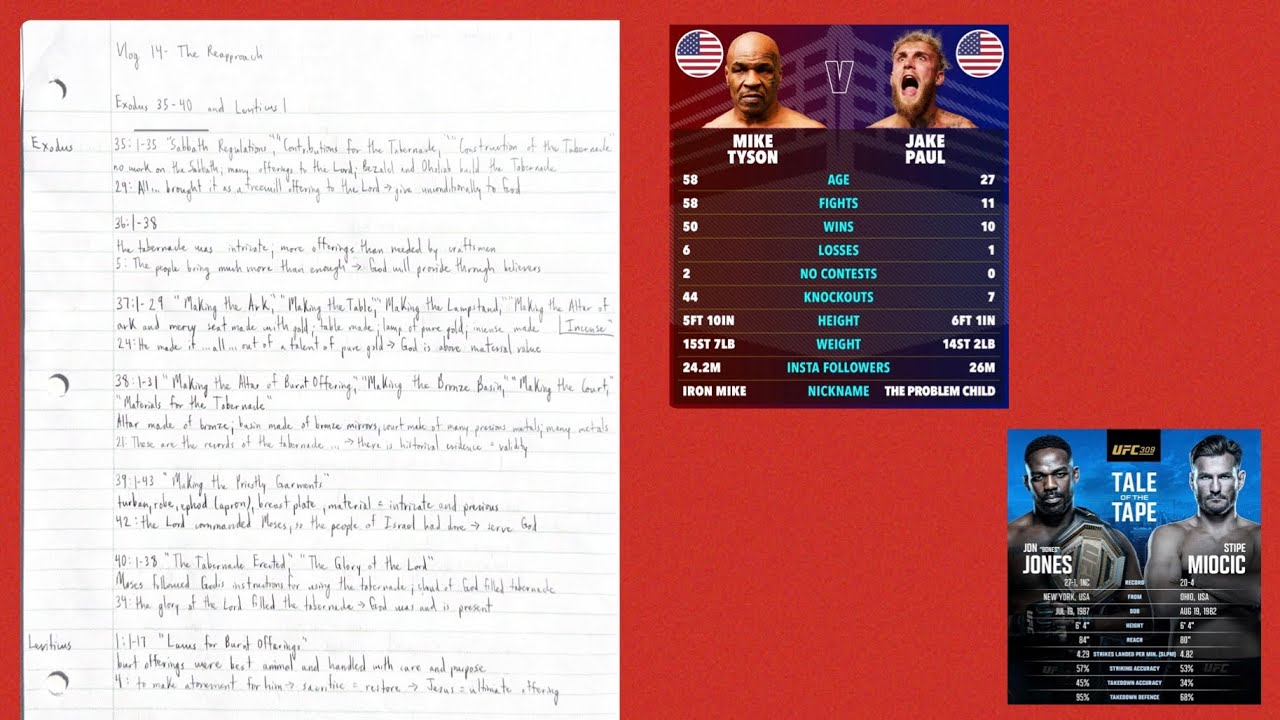 Vlog 14- The Reapproach
Exodus 35-40 and Leviticus 1
Exodus
35:1-35 "Sabbath Regulations", "Contributions for the Tabernacle," "Construction of the Tabernacle"
no work on the Sabbath; many offerings to the Lord; Bezalel and Oholiab build the Tabernacle
29: All... brought it as a freewill offering to the Lord → give unconditionally to God
36:1-38
the tabernacle was intricate; more offerings than needed by craftsmen
5: The people bring much more than enough → God will provide through believers
37:1-29 "Making the Ark," "Making the Table," "Making the Lampstand," "Making the Altar of
Incense"
ark and mercy seat made with gold; table made; lamp of pure gold; incense made
24: He made it ...all... out of a talent of pure gold → God is above material value
38:1-31 "Making the Altar of Burnt Offering," "Making the Bronze Basin," "Making the Court,"
"Materials for the Tabernacle"
Altar made of bronze; basin made of bronze mirrors, court made of many precious metals; many metals
21: These are the records of the tabernacle ... → there is historical evidence = validity
39:1-43 "Making the Priestly Garments"
turban, robe, ephod (apron), breast plate, material = intricate and precious
42: the Lord commanded Moses, so the people of Israel had done → serve God
40:1-38 "The Tabernacle Erected," "The Glory of the Lord"
Moses followed God's instructions for using the tabernacle; cloud of God filled tabernacle
34: the glory of the Lord filled the tabernacle → God was and is present
Leviticus
1:1-17 "Laws for Burnt Offerings"
burt offerings were best animal and handled with care and purpose
4: to make atonement for him → sacrifice = restore → Jesus = ultimate offering
V
MIKE TYSON
JAKE PAUL
58 AGE 27
58 FIGHTS 11
50 WINS 10
6 LOSSES 1
2 NO CONTESTS 0
44 KNOCKOUTS 7
5FT 10IN HEIGHT 6FT 1IN
15ST 7LB WEIGHT 14ST 2LB
24.2M INSTA FOLLOWERS 26M
IRON MIKE NICKNAME THE PROBLEM CHILD
UFC 309
TALE
OF THE
TAPE
JON "BONES"
JONES
STIPE
MIOCIC
27-1, 1NC RECORD 20-4
NEW YORK, USA FROM OHIO, USA
JUL 19, 1987 DOB AUG 19, 1982
6' 4" HEIGHT 6' 4"
84" REACH 80"
4.29 STRIKES LANDED PER MIN. (SLPM) 4.82
57% STRIKING ACCURACY 53%
45% TAKEDOWN ACCURACY 34%
95% TAKEDOWN DEFENCE 68%